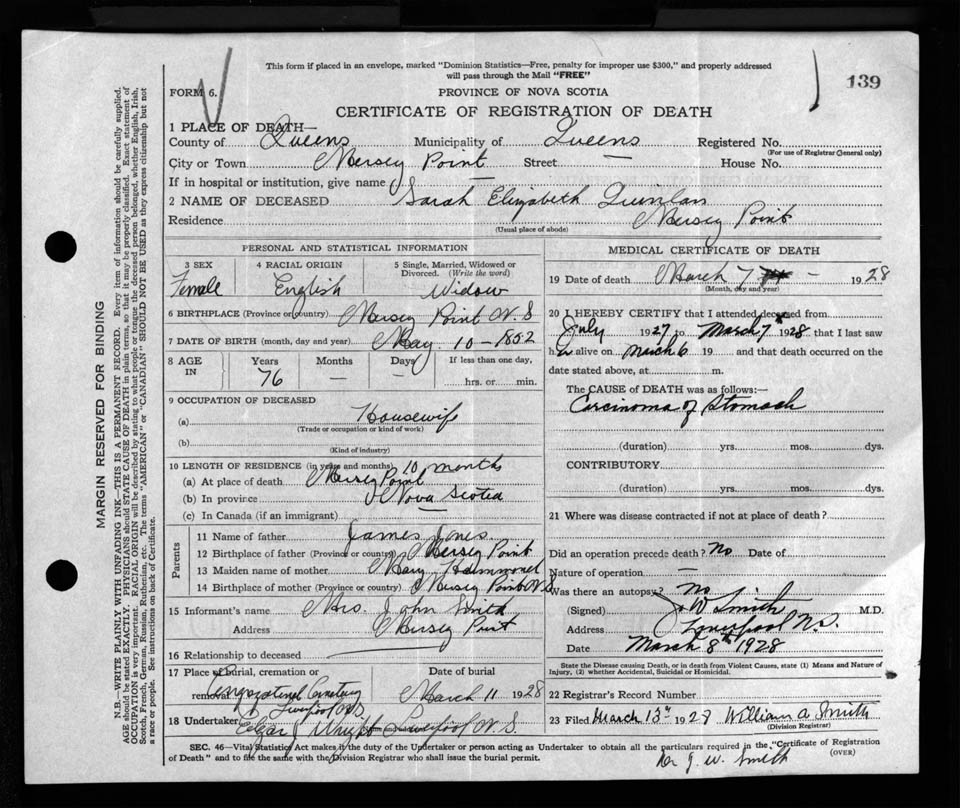 This form if placed in an envelope, marked "Dominion Statistics—Free, penalty for improper use $300," and properly addressed
will pass through the Mail "FREE"
139
FORM 6.
PROVINCE OF NOVA SCOTIA
CERTIFICATE OF REGISTRATION OF DEATH
1 PLACE OF DEATH—
County of Queens Municipality of Queens Registered No.
(For use of Registrar General only)
City or Town Mersey Point Street — House No.
If in hospital or institution, give name
2 NAME OF DECEASED Sarah Elizabeth
Residence Mersey Point
(Usual place of abode)
PERSONAL AND STATISTICAL INFORMATION
3 SEX 4 RACIAL ORIGIN 5 Single, Married, Widowed or Divorced. (Write the word)
Female English Widow
6 BIRTHPLACE (Province or country) Mersey Point N.S
7 DATE OF BIRTH (month, day and year) May 10 – 1852
8 AGE IN Years Months Days If less than one day,
76 — — hrs. or min.
9 OCCUPATION OF DECEASED
(a) Housewife
(Trade or occupation or kind of work)
(b)
(Kind of industry)
10 LENGTH OF RESIDENCE (in years and months) 10 months
(a) At place of death Mersey Point
(b) In province Nova Scotia
(c) In Canada (if an immigrant) —
Parents
11 Name of father James Jones
12 Birthplace of father (Province or country) Mersey Point
13 Maiden name of mother Mary Hammond
14 Birthplace of mother (Province or country) Mersey Point N.S
15 Informant's name Mrs. John Smith
Address Mersey Point
16 Relationship to deceased
17 Place of Burial, cremation or removal Date of burial
Congregational Cemetery
Liverpool N.S.
March 11 1928
18 Undertaker Edgar J Wright Liverpool N.S.
MEDICAL CERTIFICATE OF DEATH
19 Date of death March 7 – 1928
(Month, day and year)
20 I HEREBY CERTIFY that I attended deceased from
July 1927 to March 7th 1928 that I last saw
her alive on March 6 19 and that death occurred on the
date stated above, at m.
The CAUSE OF DEATH was as follows:—
Carcinoma of Stomach
(duration) yrs. mos. dys.
CONTRIBUTORY
(duration) yrs. mos. dys.
21 Where was disease contracted if not at place of death?
Did an operation precede death? No Date of
Nature of operation —
Was there an autopsy? No
(Signed) J W Smith M.D.
Address Liverpool N.S.
Date March 8th 1928
State the Disease causing Death, or in death from Violent Causes, state (1) Means and Nature of
Injury, (2) whether Accidental, Suicidal or Homicidal.
22 Registrar's Record Number
23 Filed March 13th 1928 William A. Smith
(Division Registrar)
SEC. 46—Vital Statistics Act makes it the duty of the Undertaker or person acting as Undertaker to obtain all the particulars required in the "Certificate of Registration
of Death" and to file the same with the Division Registrar who shall issue the burial permit.
(OVER)
Dr J. W. Smith
MARGIN RESERVED FOR BINDING
N.B.—WRITE PLAINLY WITH UNFADING INK—THIS IS A PERMANENT RECORD. Every item of information should be carefully supplied.
AGE should be stated EXACTLY. PHYSICIANS should STATE CAUSE OF DEATH in plain terms, so that it may be properly classified. Exact statement of
OCCUPATION is very important. RACIAL ORIGIN will be described by stating to what people or tongue the deceased person belonged, whether English, Irish,
Scotch, French, German, Russian, Ruthenian, etc. The terms "AMERICAN" or "CANADIAN" SHOULD NOT BE USED as they express citizenship but not
a race or people. See instructions on back of Certificate.